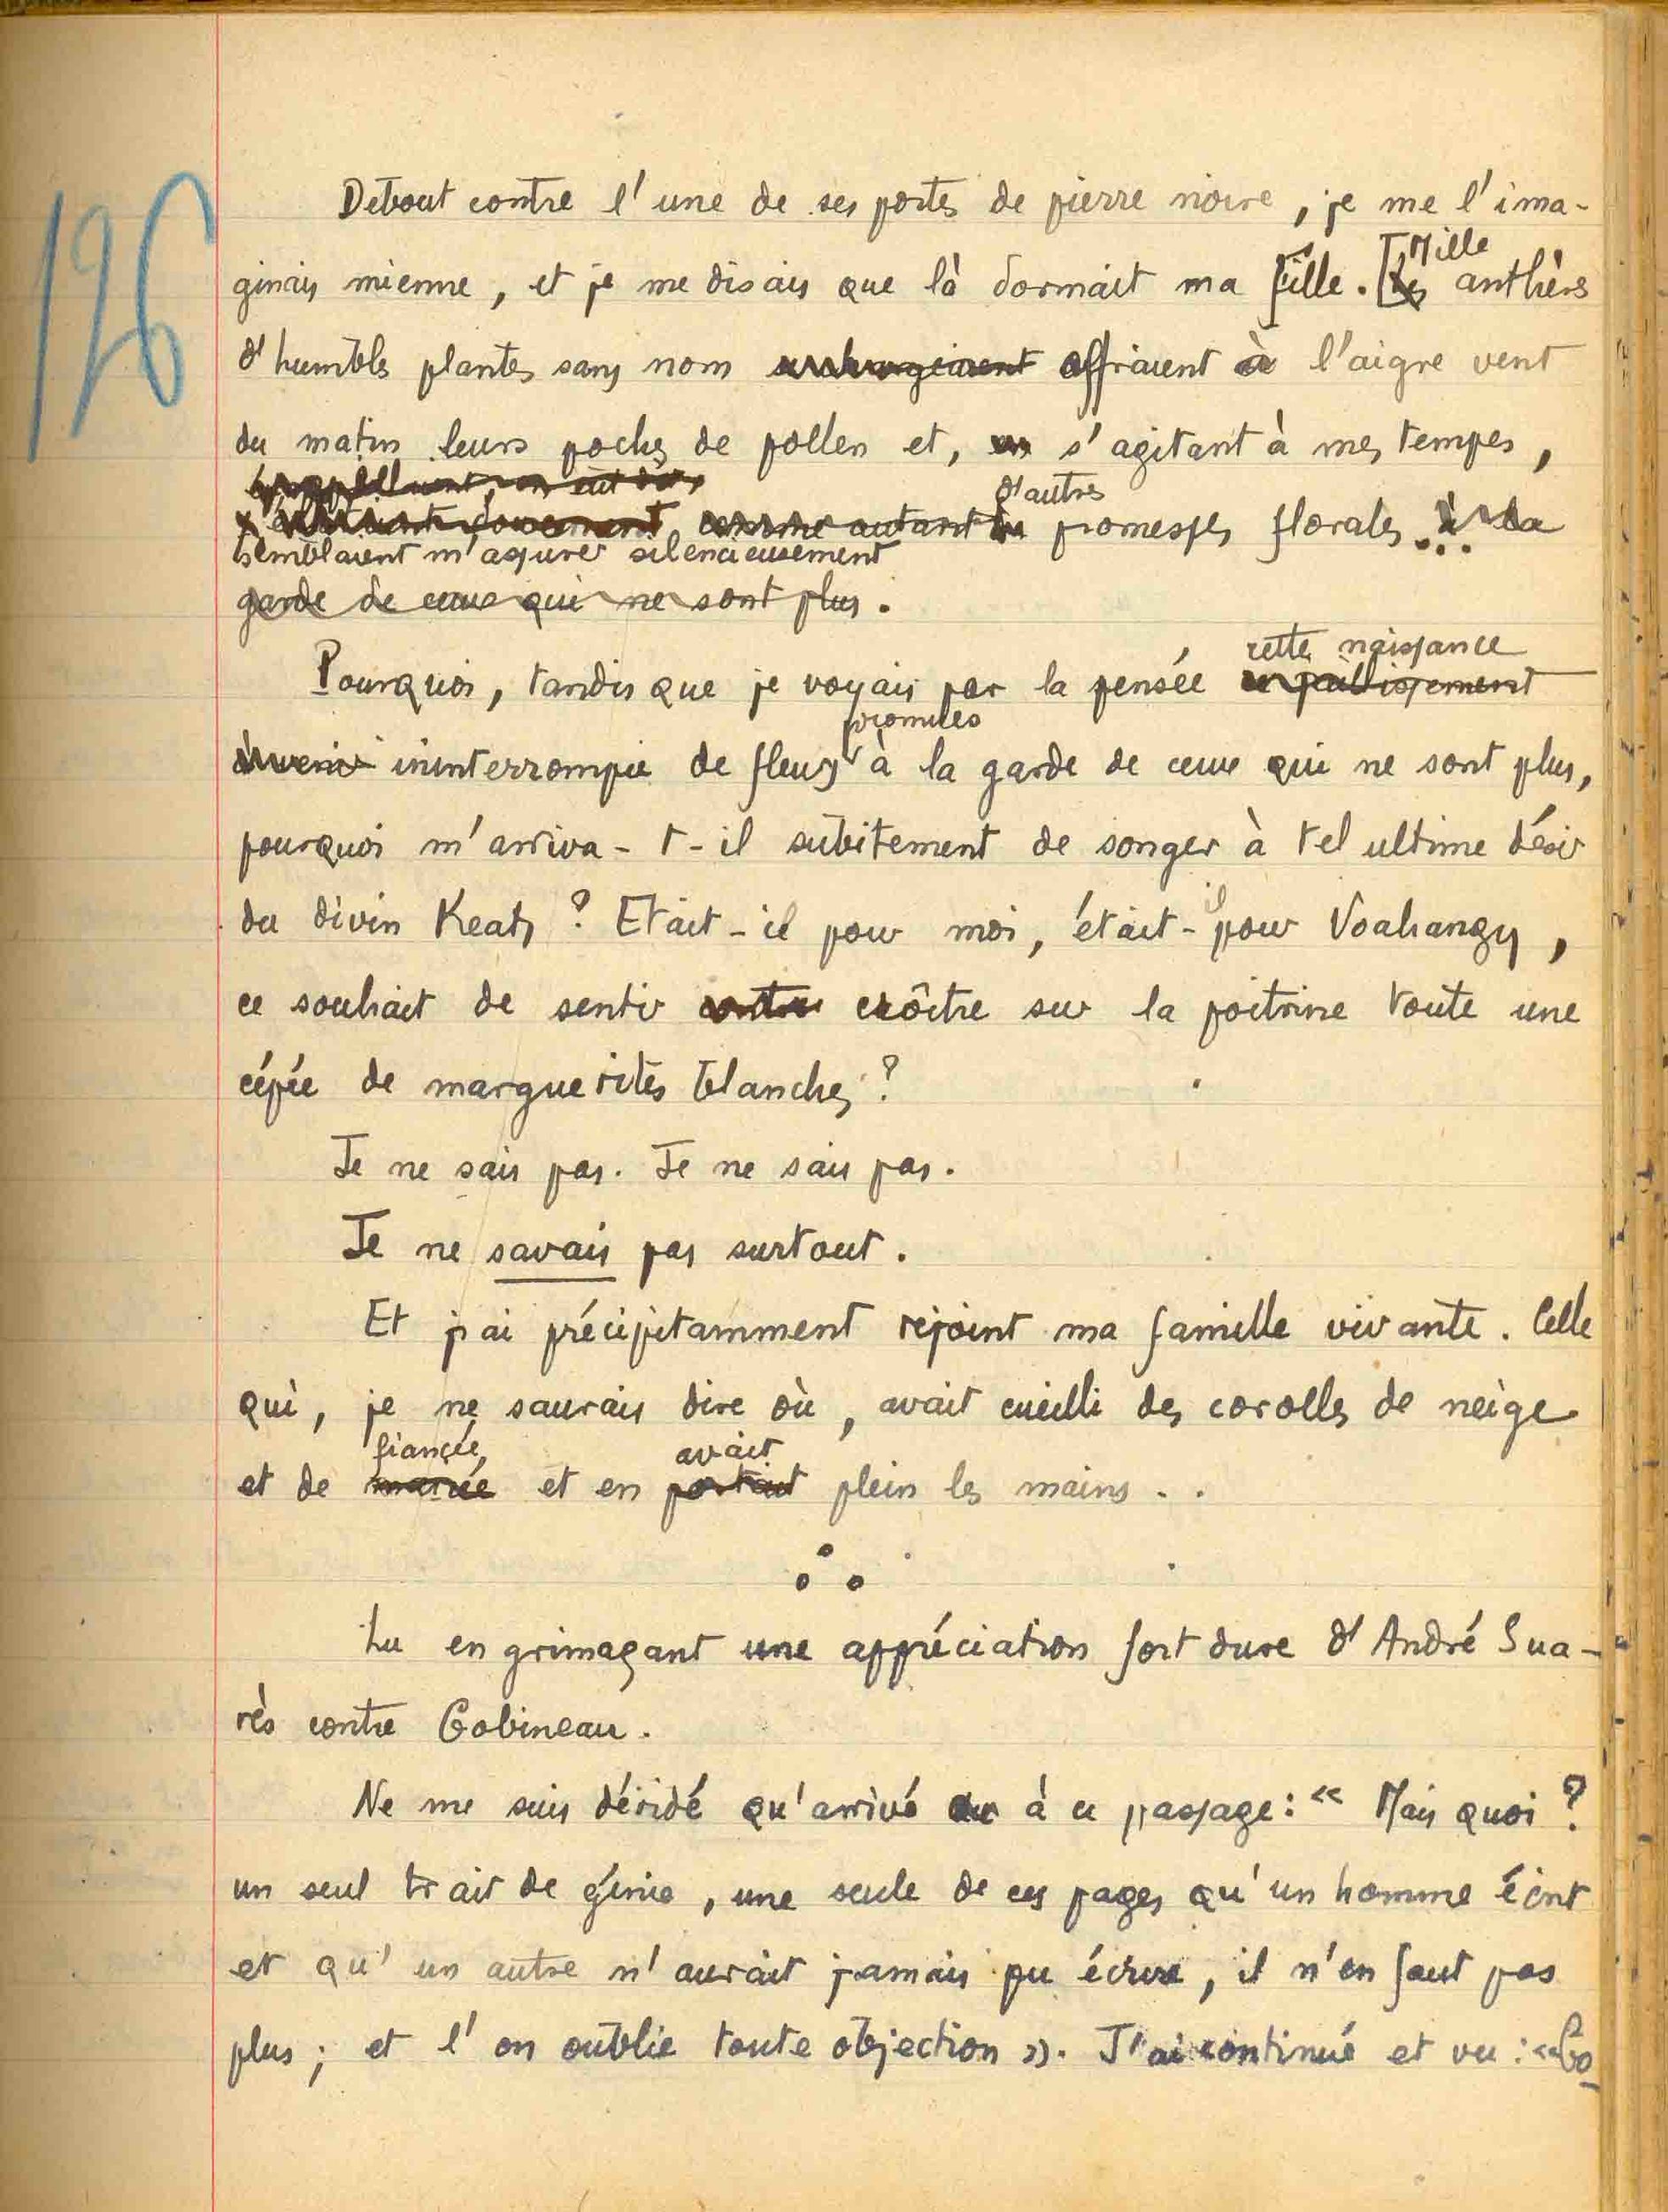 126
Debout contre l'une de ses portes de pierre noire, je me l'ima-
ginais mienne, et je me disais que là dormait ma fille. [Mille
Les anthères
d'humbles plantes sans nom offraient à l'aigre vent
du matin leurs poches de pollen et, s'agitant à mes tempes,
on eût dit,
d'autres
doucement, comme autant de promesses florales... à la
semblaient m'assurer silencieusement
garde de ceux qui ne sont plus.
cette naissance
Pourquoi, tandis que je voyais par la pensée un jaillissement
promues
à venir ininterrompue de fleurs à la garde de ceux qui ne sont plus,
pourquoi m'arriva-t-il subitement de songer à tel ultime désir
du divin Keats ? Etait-il pour moi, était-il pour Voahangy,
ce souhait de sentir croître sur la poitrine toute une
cépée de marguerites blanches ?
Je ne sais pas. Je ne sais pas.
Je ne savais pas surtout.
Et j'ai précipitamment rejoint ma famille vivante. Celle
qui, je ne saurais dire où, avait cueilli des corolles de neige
fiancée, avait
et de mariée et en portait plein les mains..
Lu en grimaçant une appréciation fort dure d'André Sua-
rès contre Gobineau.
Ne me suis déridé qu'arrivé à ce passage : « Mais quoi ?
un seul trait de génie, une seule de ces pages qu'un homme écrit
et qu'un autre n'aurait jamais pu écrire, il n'en faut pas
plus ; et l'on oublie toute objection ». J'ai continué et vu : « Go-